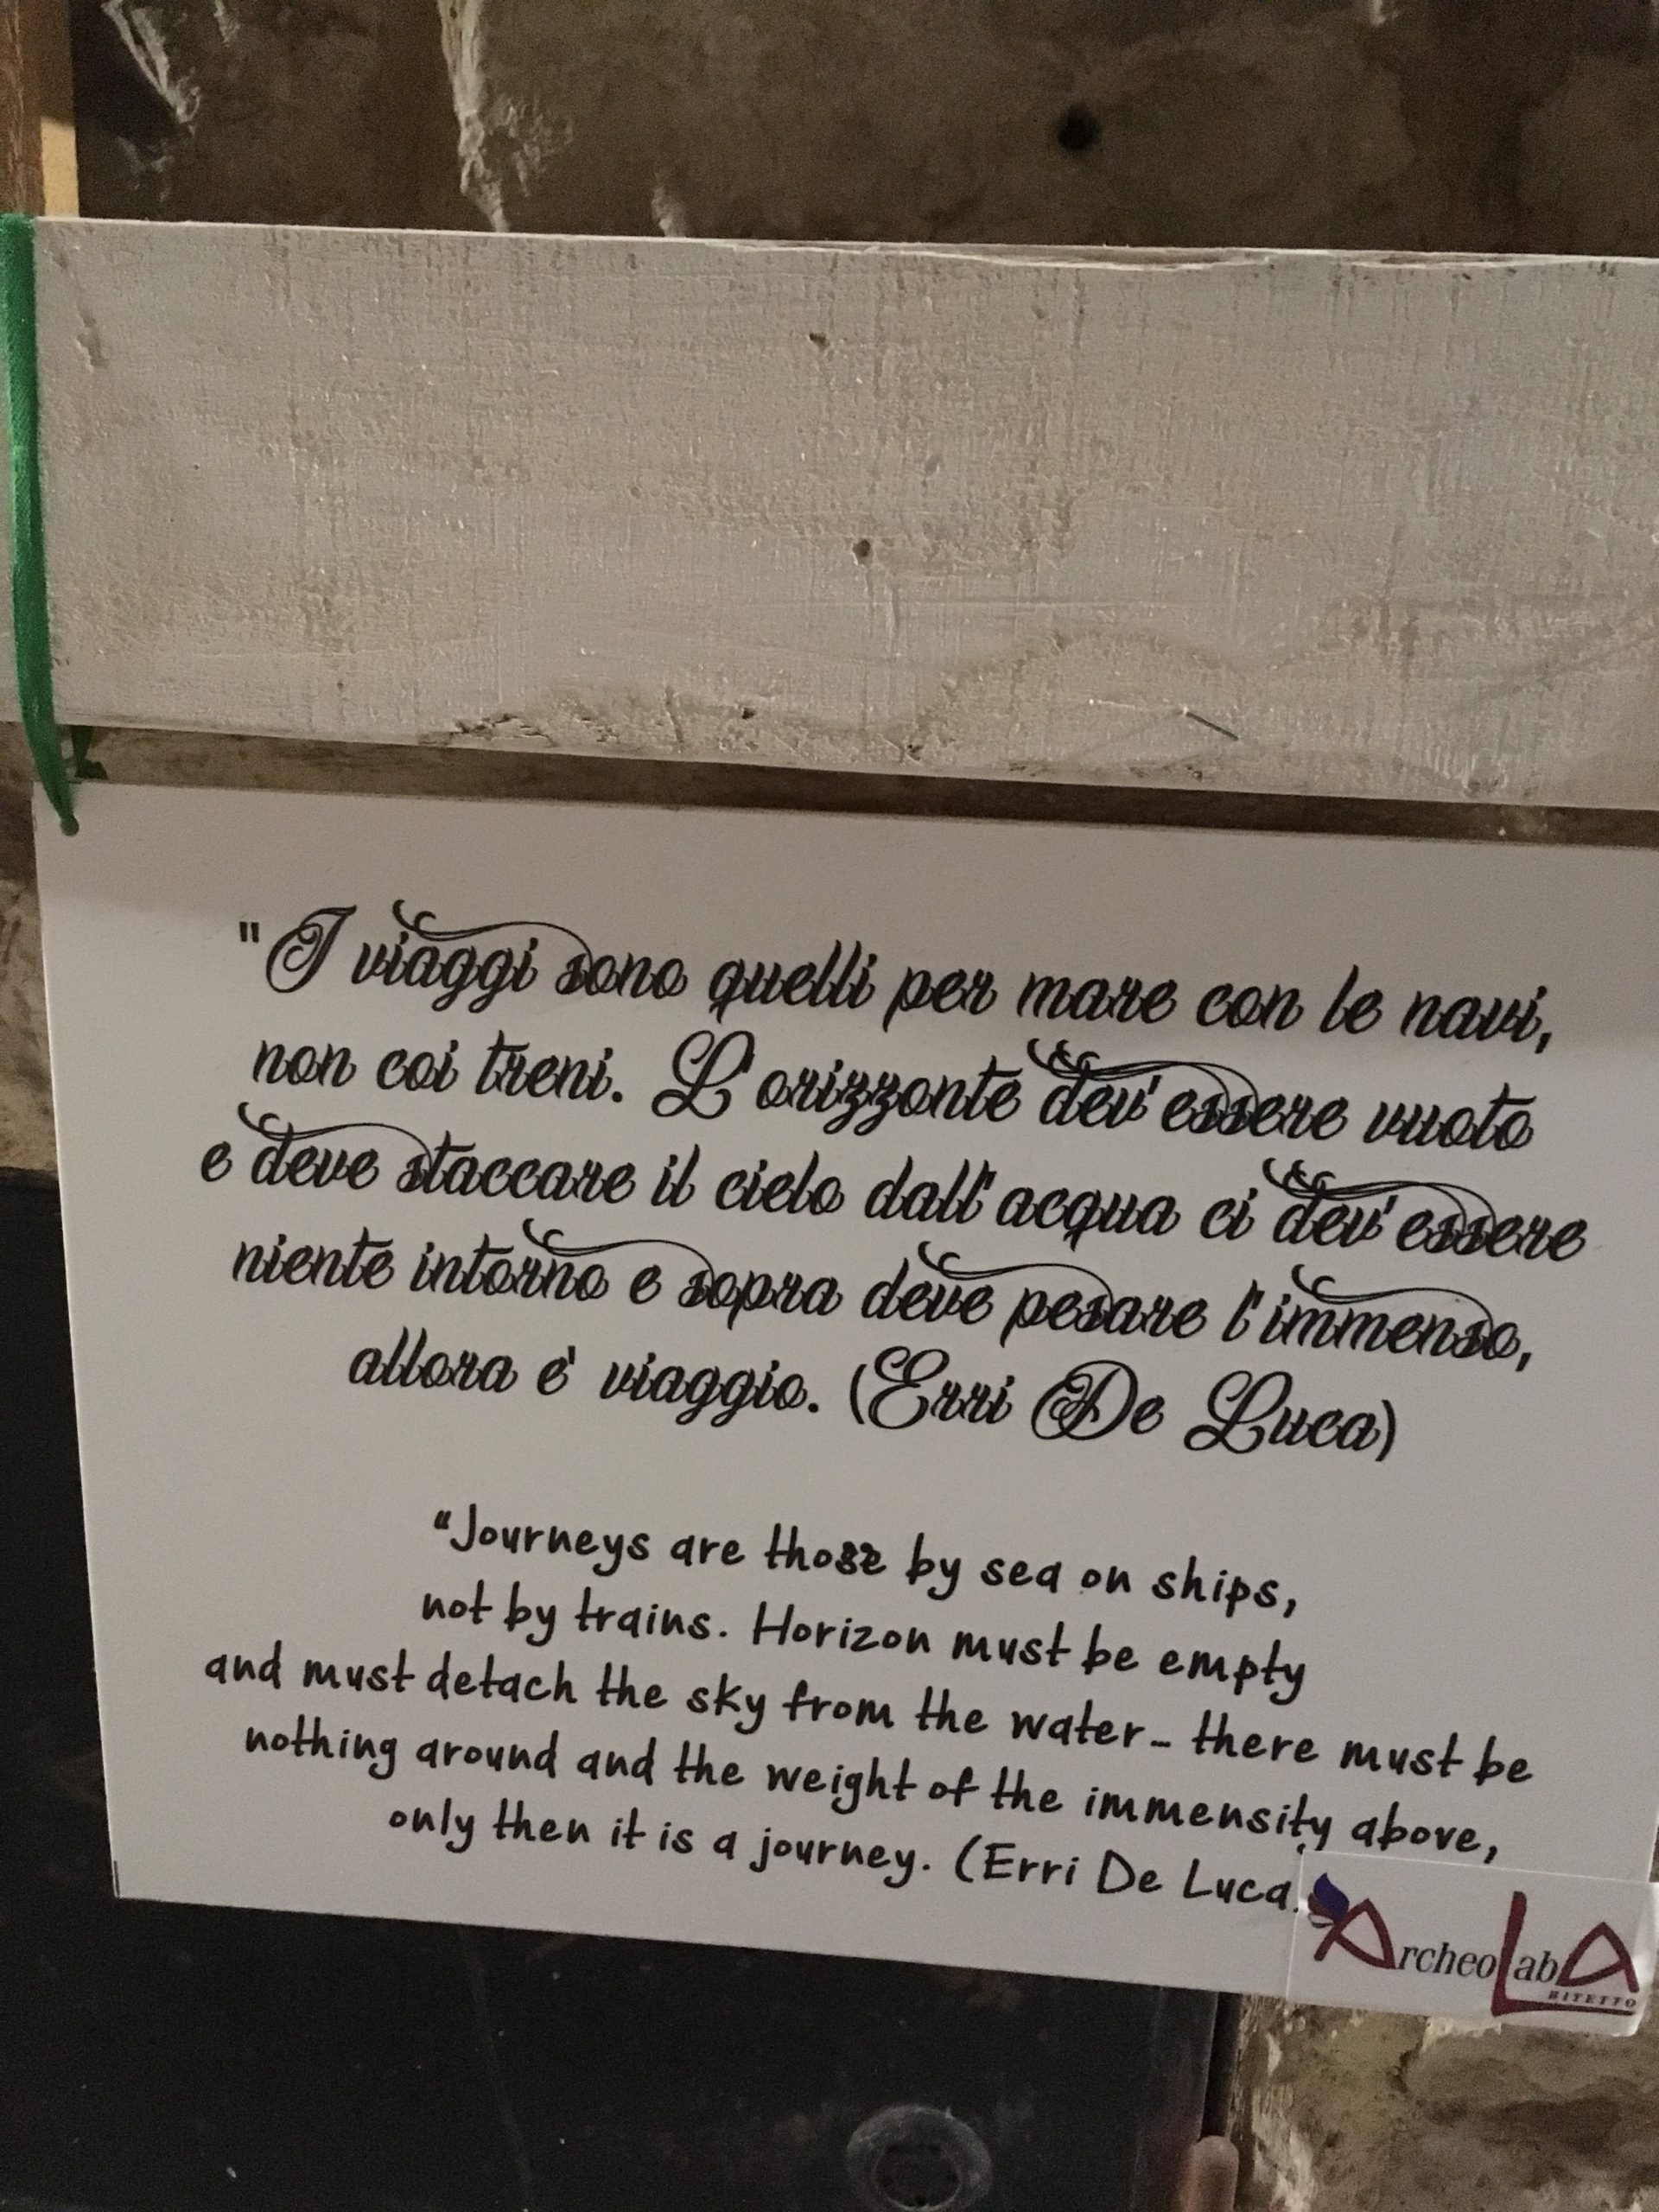 "I viaggi sono quelli per mare con le navi,
non coi treni. L'orizzonte dev'essere vuoto
e deve staccare il cielo dall'acqua ci dev'essere
niente intorno e sopra deve pesare l'immenso,
allora e' viaggio. (Erri De Luca)
"Journeys are those by sea on ships,
not by trains. Horizon must be empty
and must detach the sky from the water_ there must be
nothing around and the weight of the immensity above,
only then it is a journey. (Erri De Luca
ArcheoLabA
BITETTO